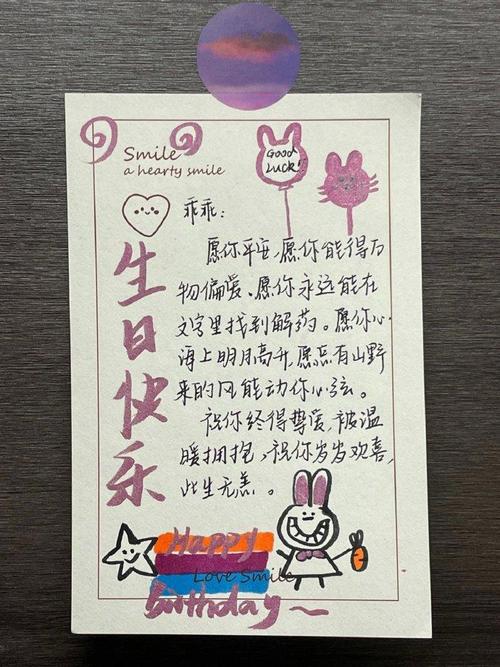 Smile
a hearty smile
Good
Luck!!
生日快乐
乖乖:
愿你平安,愿你能得万
物偏爱、愿你永远能在
文字里找到解药。愿你心
海上明月高升,愿总有山野
来的风能动你心弦。
祝你终得挚爱,被温
暖拥抱,祝你岁岁欢喜,
此生无恙。
Happy
Love Smile
Birthday~